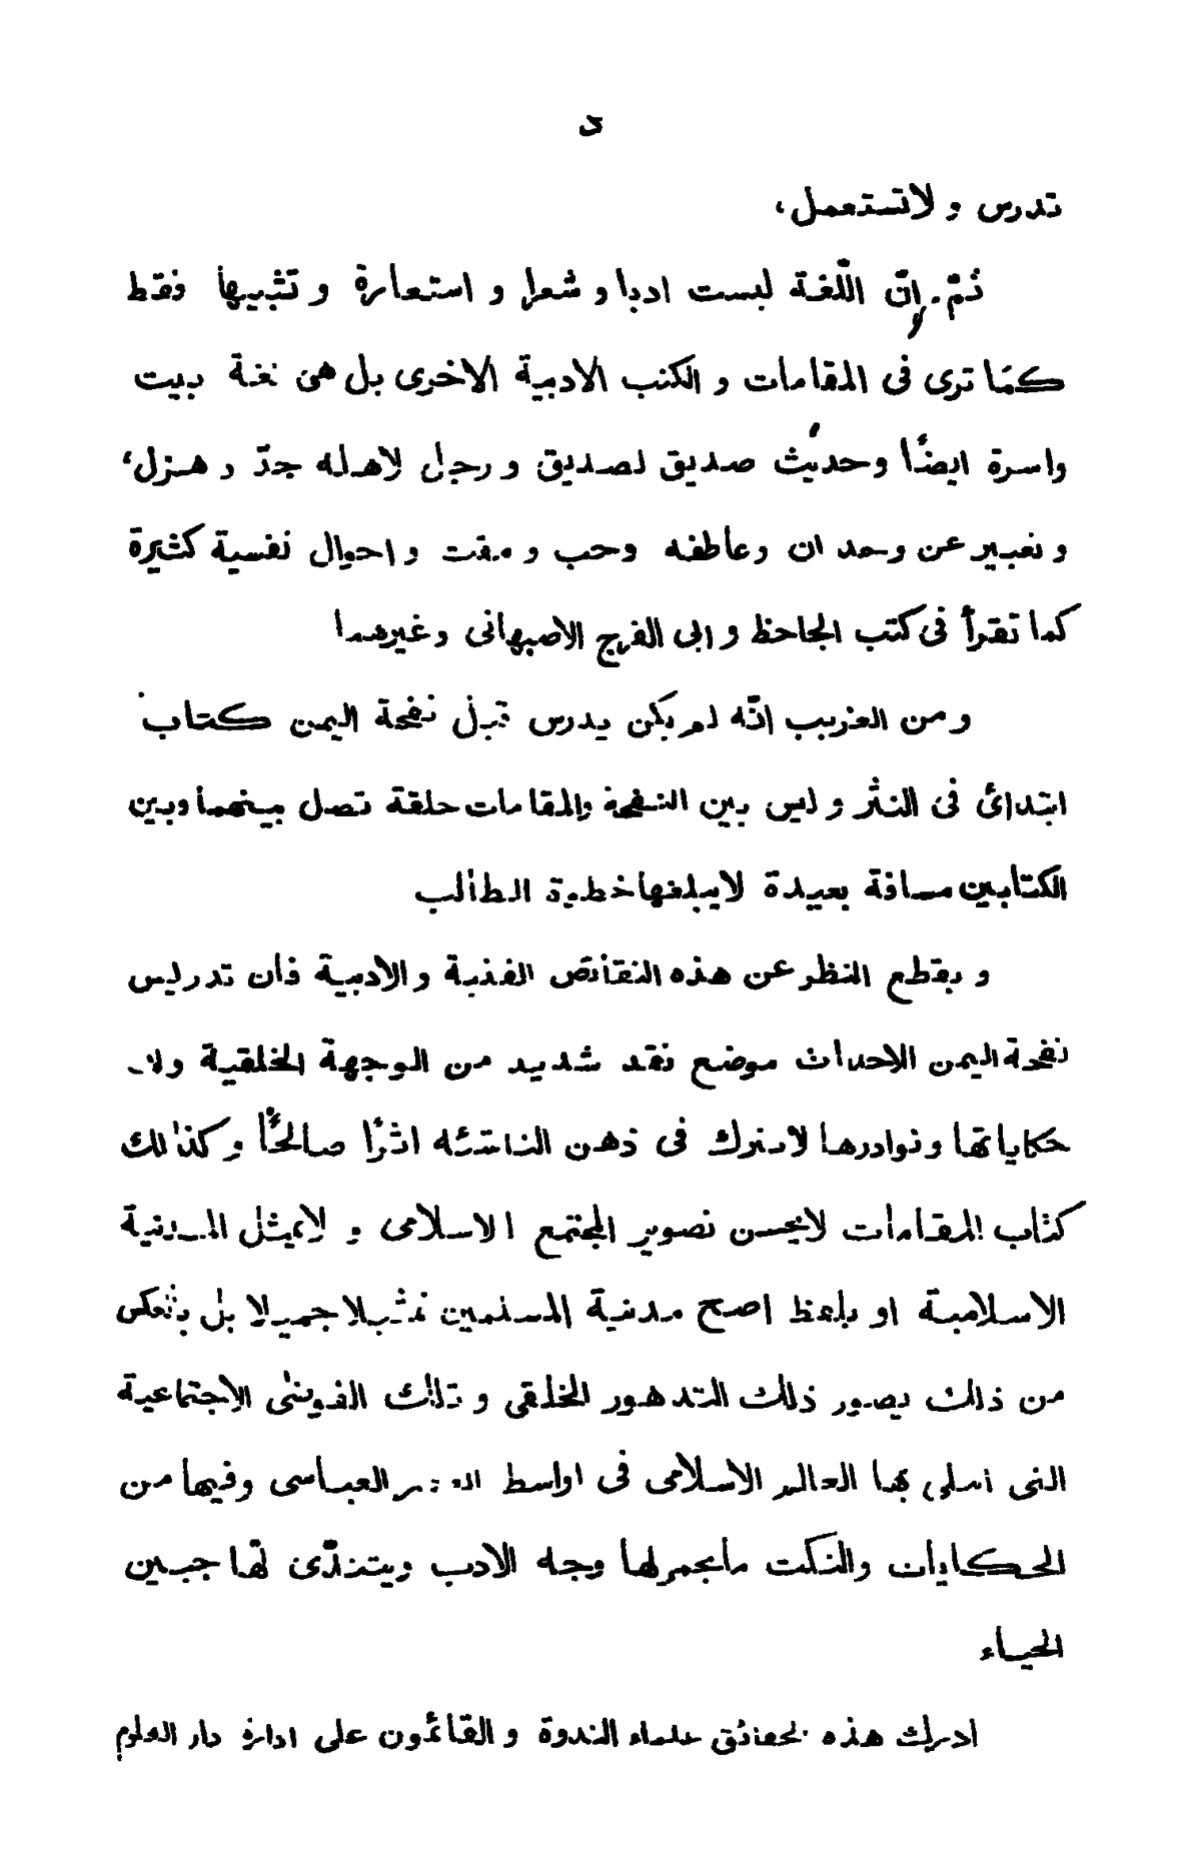 د
تدرس و لاتستعمل،
ثمّ. إنّ اللّغة ليست ادبا و شعرا و استعارة و تشبيها فقط
كما ترى فى المقامات و الكتب الادبية الاخرى بل هى لغة بيت
واسرة ايضًا وحديث صديق لصديق و رجل لاهله جدّ و هزل،
و تعبير عن وجدان وعاطفه وحب و مقت و احوال نفسية كثيرة
كما تقرأ فى كتب الجاحظ و ابى الفرج الاصبهانى وغيرهما
ومن الغريب انّه لم يكن يدرس قبل نفحة اليمن كتاب
ابتدائ فى النثر و ليس بين النفحة والمقامات حلقة تصل بينهما وبين
الكتابين مسافة بعيدة لايبلغها خطوة الطالب
و بقطع النظر عن هذه النقائص الفنية و الادبية فان تدريس
نفحة اليمن الاحداث موضع نقد شديد من الوجهة الخلقية ولا
حكاياتها ونوادرها لاتترك فى ذهن الناشئه اثرًا صالحًا وكذلك
كتاب المقامات لايحسن تصوير المجتمع الاسلامى و لايمثل المدنية
الاسلامية او بلفظ اصح مدنية المسلمين تمثيلا جميلا بل بالعكس
من ذالك يصور ذلك التدهور الخلقى و تلك الفوضى الاجتماعية
التى ابتلى بها العالم الاسلامى فى اواسط العصر العباسى وفيها من
الحكايات والنكت مايحمر لها وجه الادب ويتندّى لها جبين
الحياء
ادرك هذه الحقائق علماء الندوة و القائمون على ادارة دار العلوم